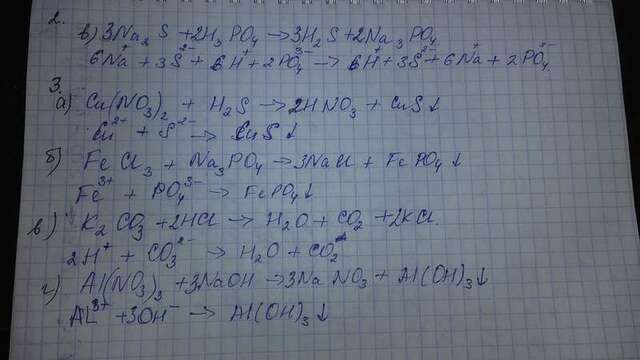 2.
в) 3Na₂S + 2H₃PO₄ → 3H₂S + 2Na₃PO₄
6Na⁺ + 3S²⁻ + 6H⁺ + 2PO₄³⁻ → 6H⁺ + 3S²⁻ + 6Na⁺ + 2PO₄³⁻
3.
а) Cu(NO₃)₂ + H₂S → 2HNO₃ + CuS↓
Cu²⁺ + S²⁻ → CuS↓
б) FeCl₃ + Na₃PO₄ → 3NaCl + FePO₄↓
Fe³⁺ + PO₄³⁻ → FePO₄↓
в) K₂CO₃ + 2HCl → H₂O + CO₂ + 2KCl.
2H⁺ + CO₃²⁻ → H₂O + CO₂
г) Al(NO₃)₃ + 3NaOH → 3NaNO₃ + Al(OH)₃↓
Al³⁺ + 3OH⁻ → Al(OH)₃↓